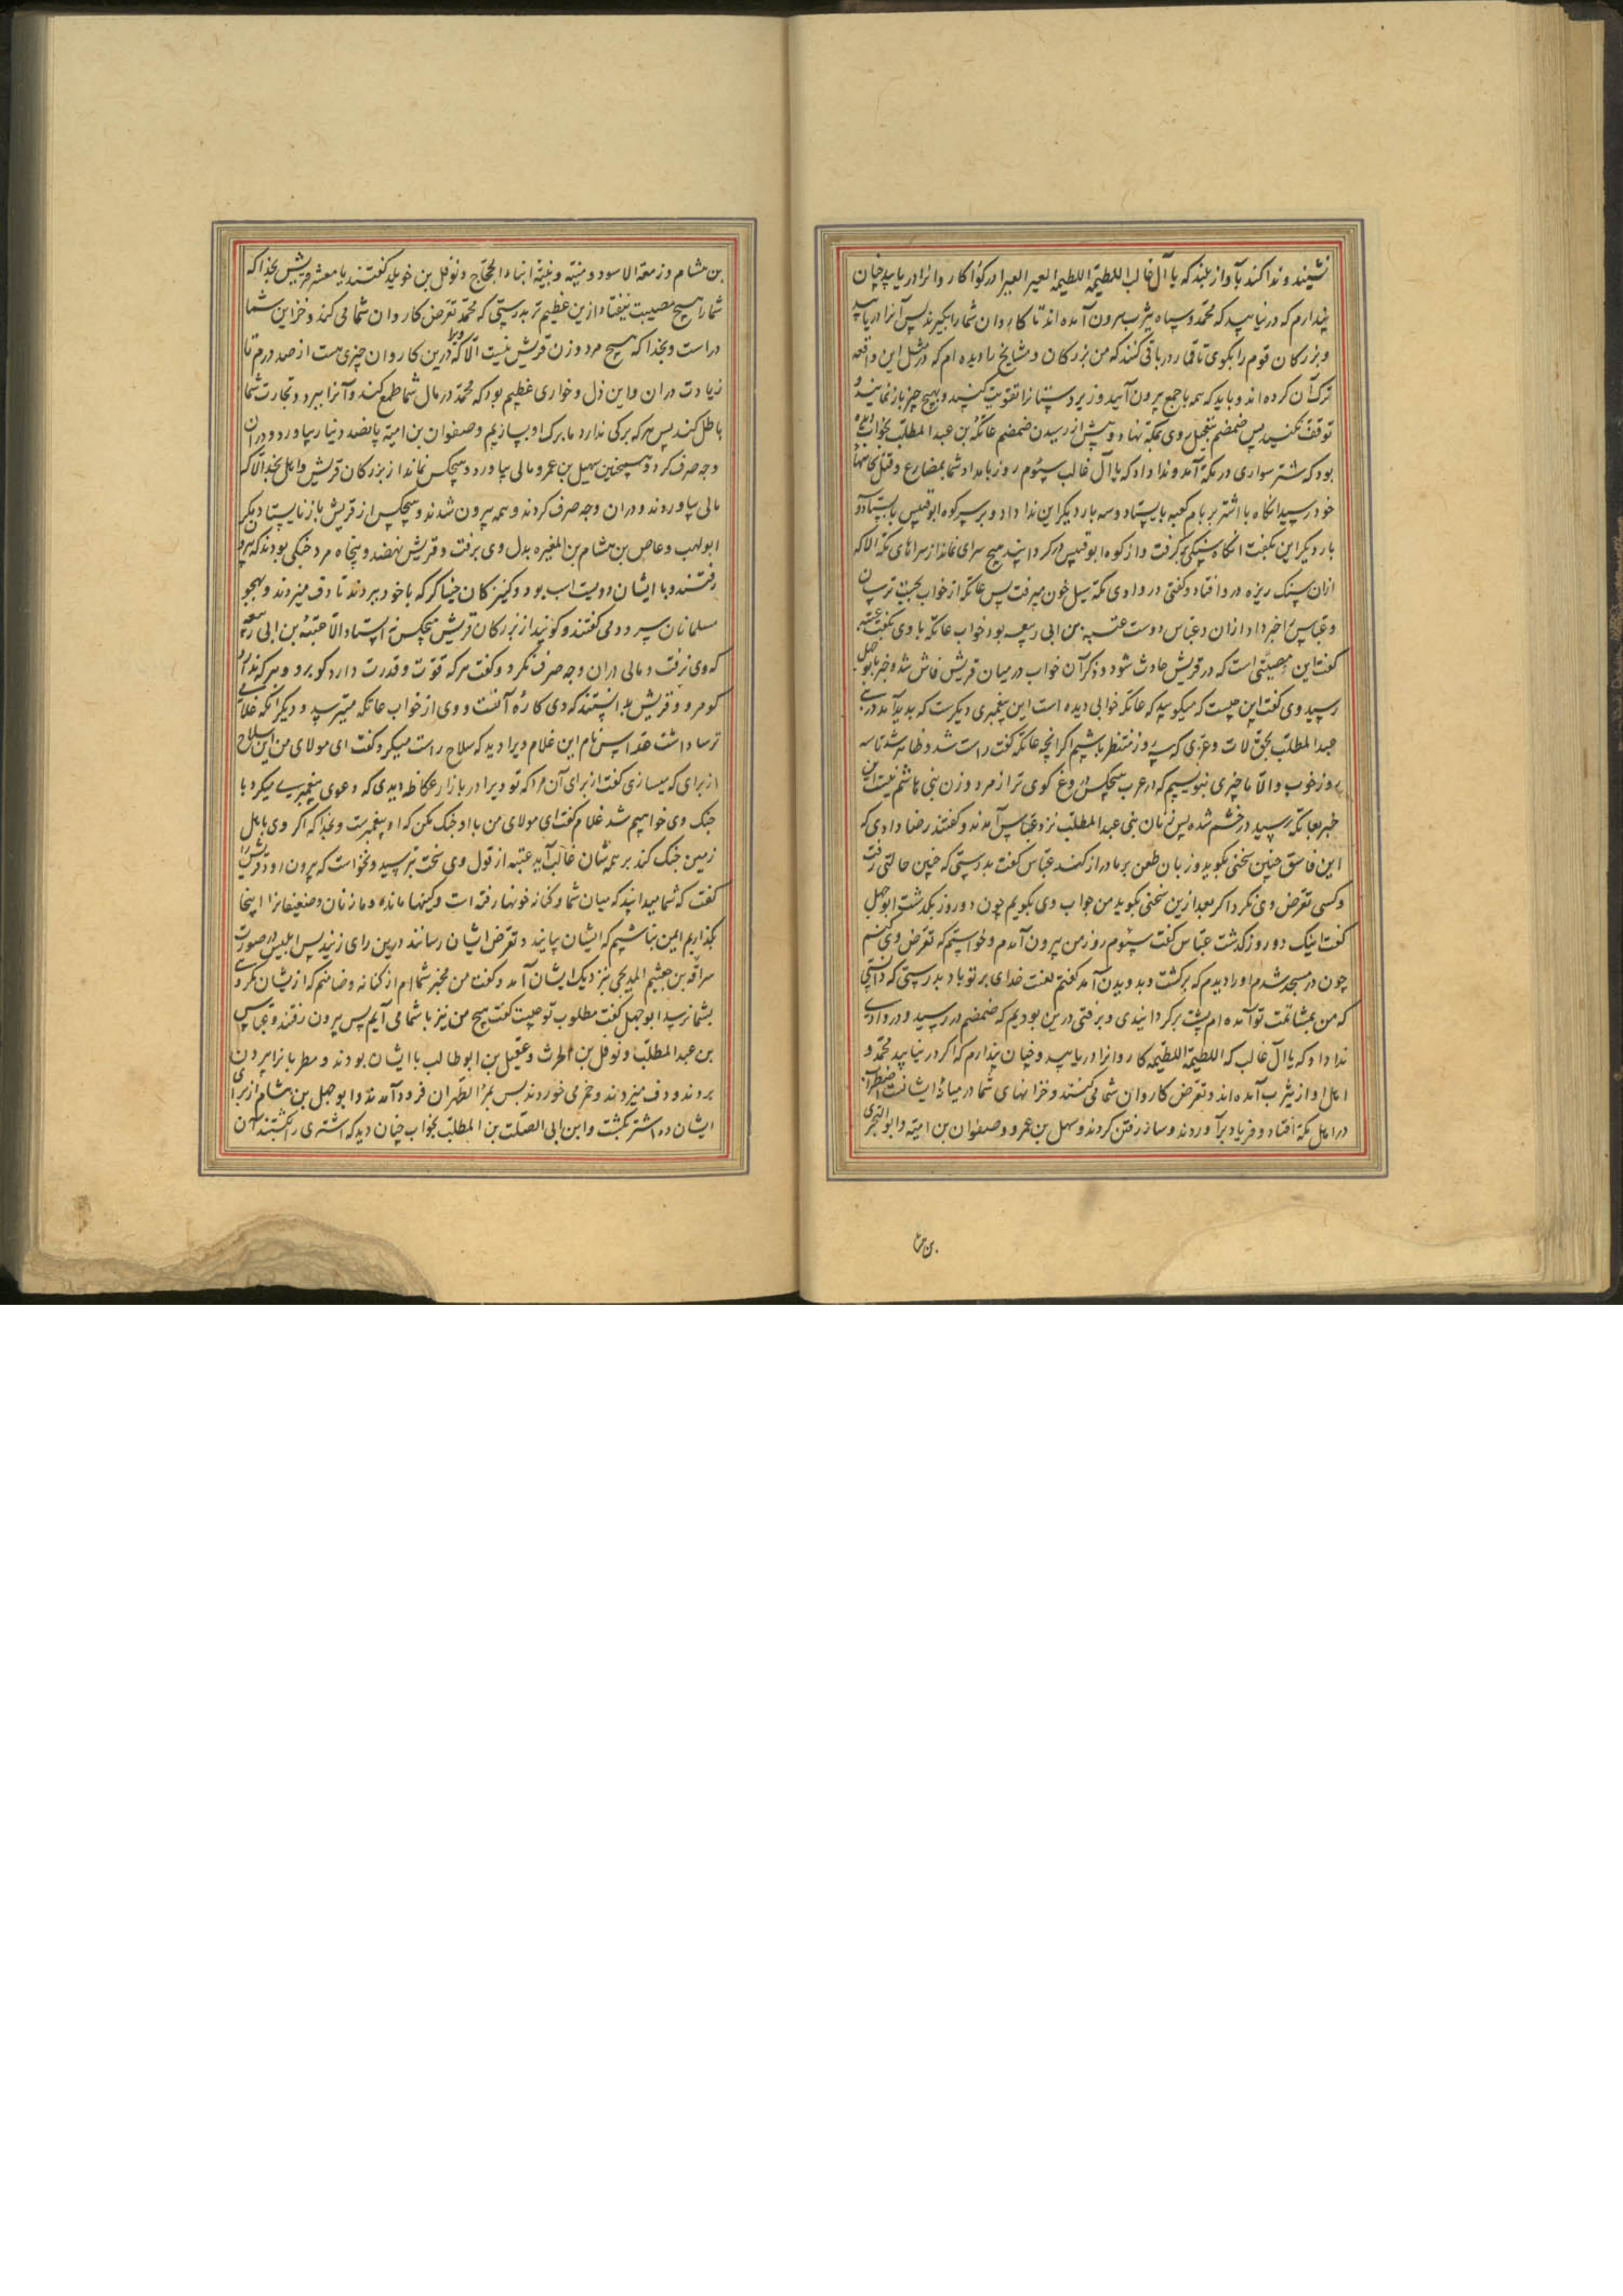 نشیند و ندا کند بآواز بلند که یا آل غالب اللطیمة اللطیمة العیر العیر ادرکوا کاروانرا دریابید چنان
پندارم که درنیابید که محمد و سپاه یثرب بیرون آمده اند تا کاروان شما را بگیرند پس آنرا دریابید
و بزرکان قوم را بکوی تا قی کنند که من بزرکان و مشایخ را دیده ام که در مثل این واقعه
ترک آن کرده اند و باید که همه با جمع بیرون آئید و زیردستانرا تقویت کنید و بهیچ چیز باز نمانید و
توقف نکنید پس ضمضم بتعجیل روی بمکه نهاد و پیش از رسیدن ضمضم عاتکه بن عبد المطلب بخواب دیده
بود که شتر سواری در مکه آمد و ندا داد که یا آل غالب سیّوم روز بامداد شما بمضارع و قتل کاهها
خود رسید انکاه با اشتر بر بام کعبه بایستاد و سه بار دیکر این ندا داد و بر سر کوه ابو قبیس بایستاد و
بار دیکر این بکفت انکاه سنکی برکرفت و از کوه ابو قبیس در کردانید هیچ سرای نماند از سراهای مکه الا که
ازان سنک ریزه در و افتاد و کفتی در وادی مکه سیل خون میرفت پس عاتکه از خواب بجست ترسان
و عباس را خبر داد ازان و عباس دوست عتبه بن ابی ربیعه بود خواب عاتکه با وی بکفت عتبه
کفت این مصیبتی است که در قریش حادث شود و ذکر آن خواب در میان قریش فاش شد و خبر بابو جهل
رسید وی کفت این چیست که میکوئید که عاتکه خوابی دیده است این پیغمبری دیکرست که پدید آمد در بنی
عبد المطلب بحق لات و عزّی که سه روز منتظر باشیم اکر انچه عاتکه کفت راست شد و ظاهر شد تا سه
روز خوب و الّا ما چیزی بنویسیم که در عرب هیچکس دروغ کوی تر از مرد و زن بنی هاشم نیست این
خبر بعاتکه رسید در خشم شده پس زنان بنی عبد المطلب نزد عباس آمدند و کفتند رضا دادی که
این فاسق چنین سخنی بکوید و زبان طعن بر ما دراز کند عباس کفت بدرستی که چنین حالتی رفت
و کسی تعرض وی نکرد اکر بعد ازین سخنی بکوید من جواب وی بکویم چون دو روز بکذشت ابو جهل
کفت اینک دو روز کذشت عباس کفت سیّوم روز من بیرون آمدم و خواستم که تعرض وی کنم
چون در مسجد شدم او را دیدم که برکشت و بدویدن آمد کفتم لعنت خدای بر تو باد بدرستی که دانستی
که من بمشاتمت تو آمده ام پشت برکردانیدی و برفتی درین بودیم که ضمضم در رسید و در وادی
ندا داد که یا آل غالب که اللطیمة اللطیمه کاروانرا دریابید و چنان پندارم که اکر درنیابید محمد و
اهل او از یثرب آمده اند و تعرض کاروان شما می کنند و خزانهای شما در میانهٔ ایشانست اضطراب
در اهل مکه افتاد و فریاد برآوردند و ساز رفتن کردند و سهل بن عمرو و صفوان بن امیّة و ابو البختری
بن هشام و زمعة الاسود و منبّه و نبیّة ابناء الحجّاج و نوفل بن خویلد کفتند یا معشر قریش بخدا که
شما را هیچ مصیبت نیفتاد ازین عظیم تر بدرستی که محمد تعرض کاروان شما می کند و خزاین شما
دراست و بخدا که هیچ مرد و زن قریش نیست الّا که ویرا درین کاروان چیزی هست از صد درم تا
زیادت دران و این ذل و خواری عظیم بود که محمد در مال شما طمع کند و آنرا ببرد و تجارت شما
باطل کند پس هر که برکی ندارد ما برک او بسازیم و صفوان بن امیّه پانصد دینار بیاورد و دران
وجه صرف کرد و همچنین سهیل بن عمرو مالی بیاورد و هیچکس نماند از بزرکان قریش و اهل بخدا الّا که
مالی بیاوردند و دران وجه صرف کردند و همه بیرون شدند و هیچکس از قریش باز نایستاد مکر
ابو لهب و عاص بن هشام بن المغیره بدل وی برفت و قریش نهصد و پنجاه مرد جنکی بودند که بیرون
رفتند و با ایشان دویست اسب بود و کنیزکان خنیاکر که با خود ببردند تا دف میزدند و بهجو
مسلمانان سرود می کفتند و کویند از بزرکان قریش هیچکس نه ایستاد الّا عتبة بن ابی ربیعه
که وی نرفت و مالی دران وجه صرف نکرد و کفت هر که قوّت و قدرت دارد کو برو و هر که ندارد
کو مرو و قریش بدانستند که وی کارهٔ آنست و وی از خواب عاتکه میترسید و دیکر انکه غلامی
ترسا داشت عدّاس نام این غلام ویرا دید که سلاح راست میکرد کفت ای مولای من این سلاح
از برای که میسازی کفت از برای آن مرد که تو ویرا در بازار عکاظ دیدی که دعوی پیغمبری میکرد با
جنک وی خواهیم شد غلام کفت ای مولای من با او جنک مکن که او پیغمبرست و بخدا که اکر وی با اهل
زمین جنک کند بر همه شان غالب آید عتبه از قول وی سخت بترسید و نخواست که بیرون رود قریش را
کفت که شما میدانید که میان شما و کنانه خونها رفته است و کینها مانده و ما زنان و ضعیفانرا اینجا
بکذاریم ایمن نباشیم که ایشان بیایند و تعرض ایشان رسانند درین رای زنید پس ابلیس در صورت
سراقة بن جعشم المدلجی بنزدیک ایشان آمد و کفت من مجیر شما ام از کنانه و ضامنم که ازیشان مکروهی
بشما نرسد ابو جهل کفت مطلوب تو چیست کفت هیچ من نیز با شما می آیم پس بیرون رفتند و عباس
بن عبد المطلب و نوفل بن الحرث و عقیل بن ابو طالب با ایشان بودند و مطربانرا بیرون
بردند و دف میزدند و خمر می خوردند پس بمرّ الظهران فرود آمدند و ابو جهل بن هشام از برای
ایشان ده اشتر بکشت و ابن ابی الصلت بن المطلب بخواب چنان دید که اشتری را کشتند آن